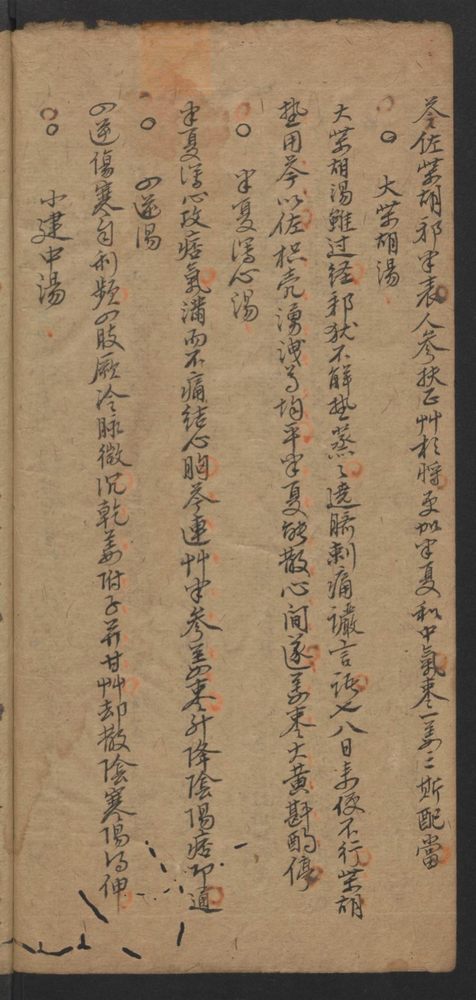 芩佐柴胡邪半表人參扶正艸於將更加半夏和中氣棗一姜三斯配當
大柴胡湯
大柴胡湯雖过经邪犹不解热蒸〻遶臍刺痛譫言語七八日来便不行柴胡
热用芩以佐枳壳湧洩為均平半夏能散心间逐姜棗大黄斟酌停
半夏瀉心湯
半夏瀉心攻痞氣滿而不痛结心胸芩連艸半參姜棗升降陰陽痞即通
四逆湯
四逆傷寒自利頻四肢厥冷脉微沉乾姜附子并甘艸却散陰寒陽乃伸
小建中湯